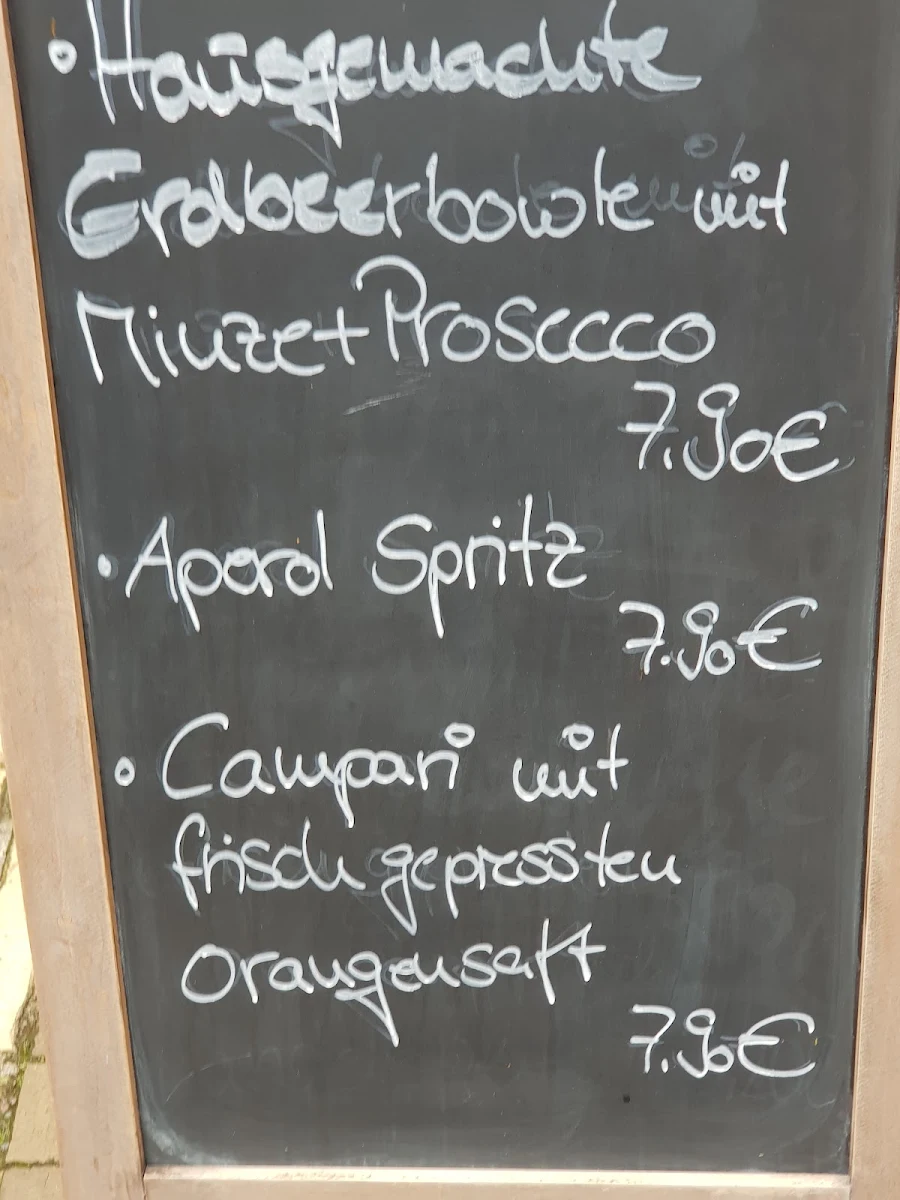 • Hausgemachte
Erdbeerbowle mit
Minze+Prosecco
7.90€
• Aperol Spritz
7.90€
• Campari mit
frisch gepressten
Orangensaft
7.90€